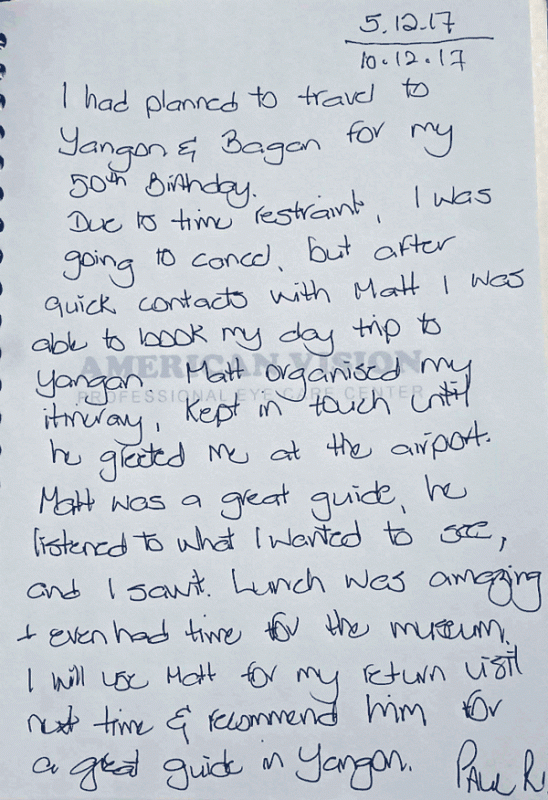 5.12.17
10.12.17
I had planned to travel to
Yangon & Bagan for my
50th Birthday.
Due to time restraint, I was
going to cancel, but after
quick contacts with Matt I was
able to book my day trip to
AMERICAN VISION
Yangan. Matt organised my
PROFESSIONAL EYE CARE CENTER
itineray, kept in touch until
he greeted me at the airport.
Matt was a great guide, he
listened to what I wanted to see,
and I saw it. Lunch was amazing
+ even had time for the museum.
I will use Matt for my return visit
next time & recommend him for
a great guide in Yangon. Paul R.